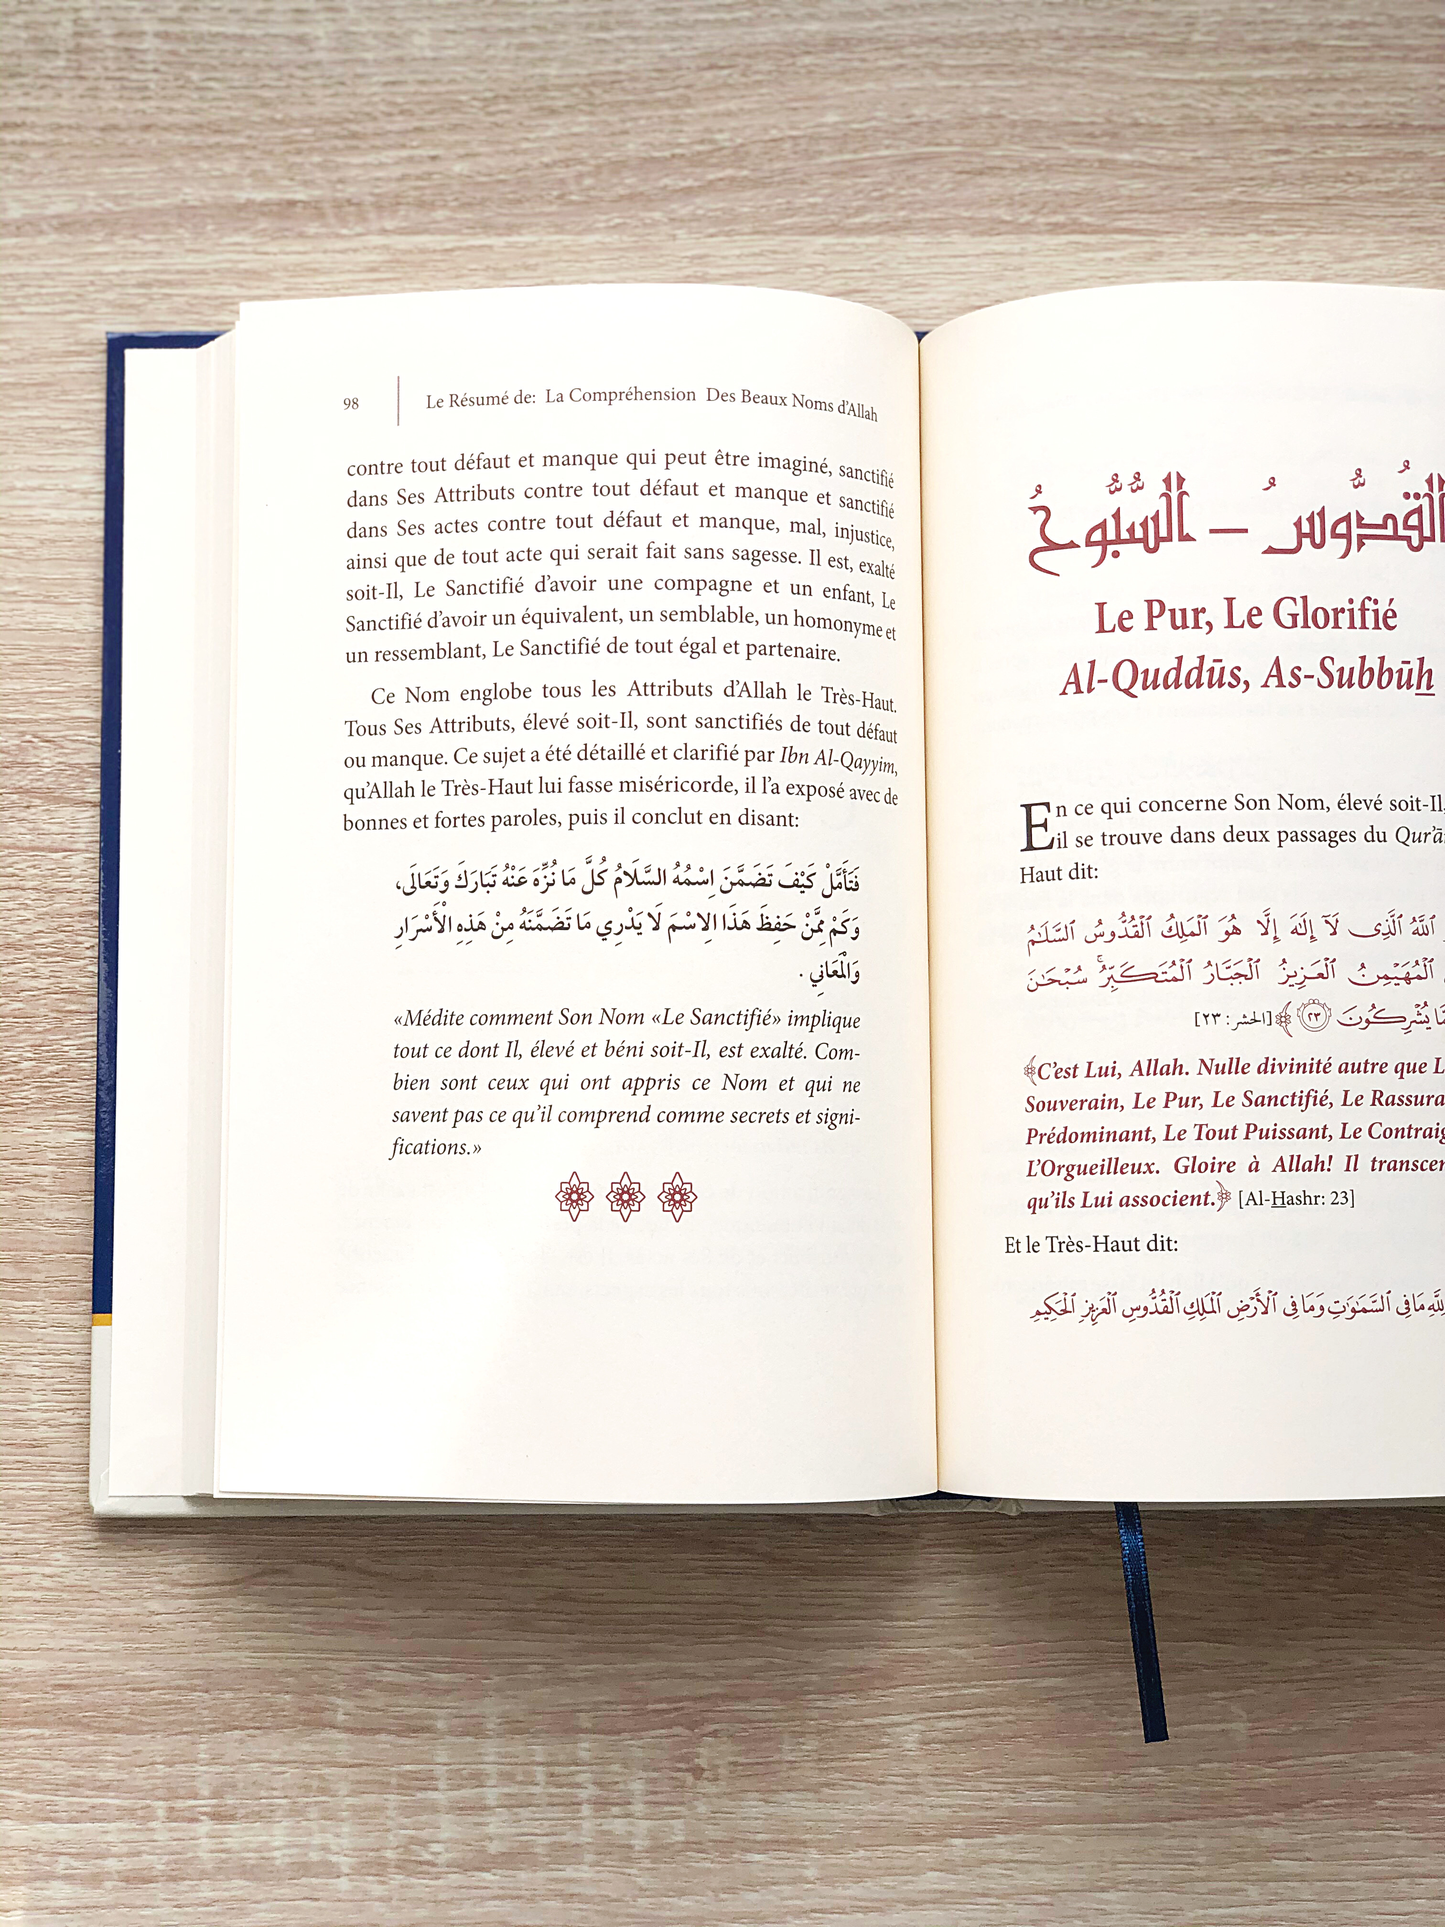 98 Le Résumé de: La Compréhension Des Beaux Noms d'Allah
contre tout défaut et manque qui peut être imaginé, sanctifié
dans Ses Attributs contre tout défaut et manque et sanctifié
dans Ses actes contre tout défaut et manque, mal, injustice,
ainsi que de tout acte qui serait fait sans sagesse. Il est, exalté
soit-Il, Le Sanctifié d'avoir une compagne et un enfant, Le
Sanctifié d'avoir un équivalent, un semblable, un homonyme et
un ressemblant, Le Sanctifié de tout égal et partenaire.
Ce Nom englobe tous les Attributs d'Allah le Très-Haut.
Tous Ses Attributs, élevé soit-Il, sont sanctifiés de tout défaut
ou manque. Ce sujet a été détaillé et clarifié par Ibn Al-Qayyim,
qu'Allah le Très-Haut lui fasse miséricorde, il l'a exposé avec de
bonnes et fortes paroles, puis il conclut en disant:
فَتَأَمَّلْ كَيْفَ تَضَمَّنَ اِسْمُهُ السَّلَامُ كُلَّ مَا نُزِّهَ عَنْهُ تَبَارَكَ وَتَعَالَى،
وَكَمْ مِمَّنْ حَفِظَ هَذَا الِاسْمَ لَا يَدْرِي مَا تَضَمَّنَهُ مِنْ هَذِهِ الْأَسْرَارِ
وَالْمَعَانِي .
«Médite comment Son Nom «Le Sanctifié» implique
tout ce dont Il, élevé et béni soit-Il, est exalté. Com-
bien sont ceux qui ont appris ce Nom et qui ne
savent pas ce qu'il comprend comme secrets et signi-
fications.»
القُدُّوسُ – السُّبُّوحُ
Le Pur, Le Glorifié
Al-Quddūs, As-Subbūh
En ce qui concerne Son Nom, élevé soit-Il,
il se trouve dans deux passages du
Haut dit:
ٱللَّهُ ٱلَّذِى لَآ إِلَٰهَ إِلَّا هُوَ ٱلْمَلِكُ ٱلْقُدُّوسُ ٱلسَّلَٰمُ
ٱلْمُهَيْمِنُ ٱلْعَزِيزُ ٱلْجَبَّارُ ٱلْمُتَكَبِّرُ ۚ سُبْحَٰنَ
يُشْرِكُونَ ٢٣ ﴾ [الحشر: ٢٣]
﴾C'est Lui, Allah. Nulle divinité autre que
Souverain, Le Pur, Le Sanctifié, Le
Prédominant, Le Tout Puissant, Le
L'Orgueilleux. Gloire à Allah! Il
qu'ils Lui associent.﴿ [Al-Hashr: 23]
Et le Très-Haut dit:
مَا فِى ٱلسَّمَٰوَٰتِ وَمَا فِى ٱلْأَرْضِ ٱلْمَلِكِ ٱلْقُدُّوسِ ٱلْعَزِيزِ ٱلْحَكِيمِ